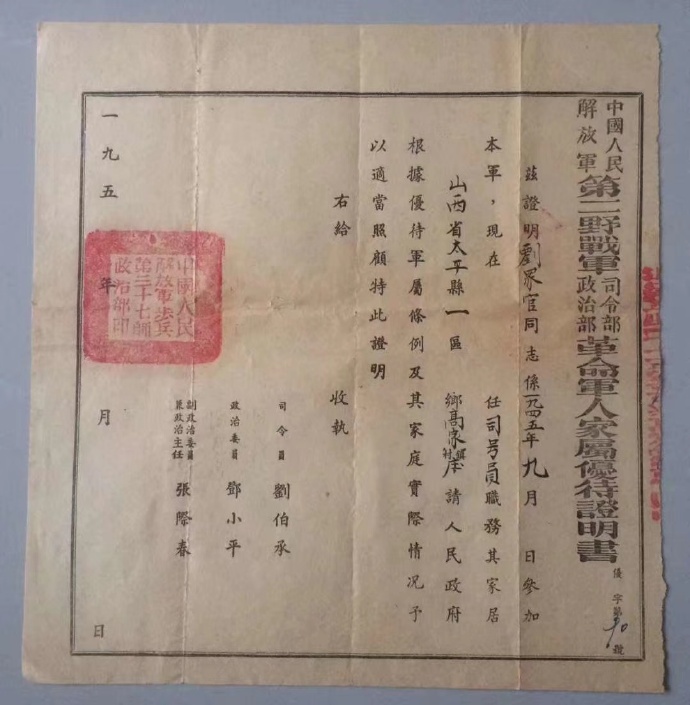 中國人民解放軍第二野戰軍司令部政治部革命軍人家屬優待證明書
優字第90號
茲證明劉眾官同志係一九四五年九月 日參加
本軍，現在 任司号員職務其家居
山西省太平縣一區 鄉高家庄 請人民政府
根據優待軍屬條例及其家庭實際情况予
以適當照顧特此證明
右給 收執
司令員 劉伯承
政治委員 鄧小平
副政治委員兼政治主任 張際春
一九五 年 月 日
中國人民
解放軍步兵
第三十七師
政治部印